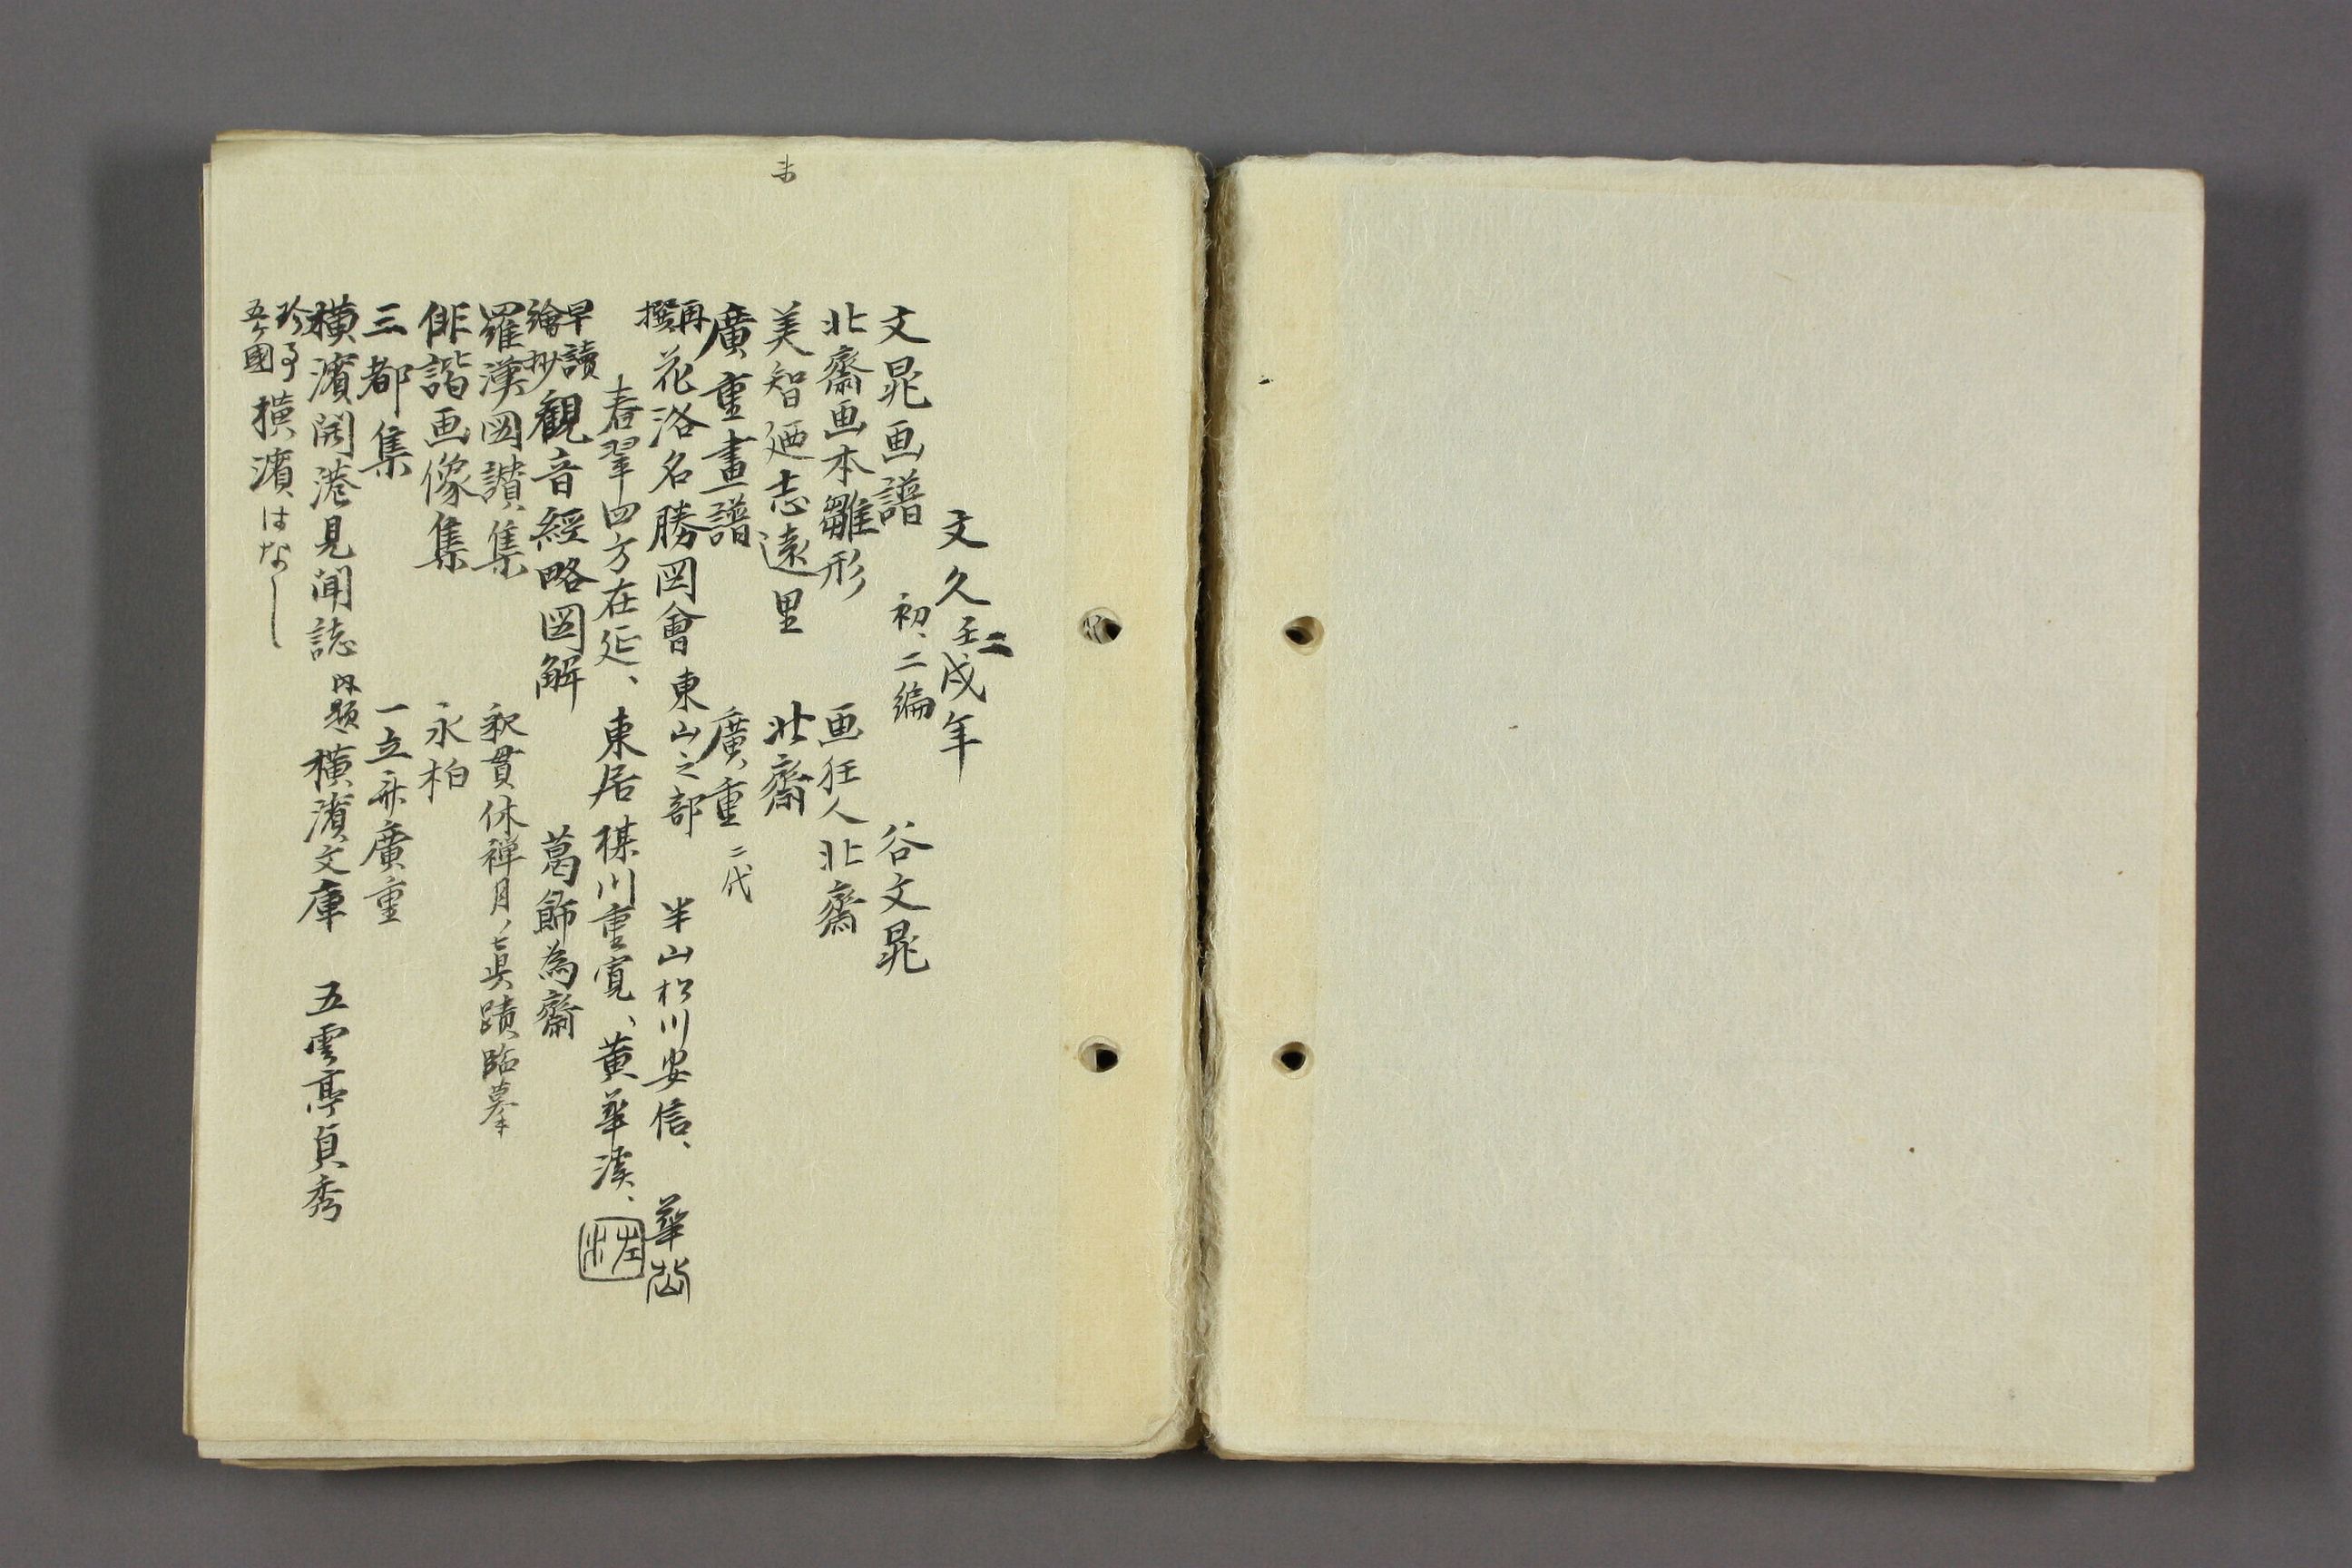 文久二壬戌年
文晁画譜 初、二編 谷文晁
北齋画本雛形 画狂人北齋
美智廼志遠里 北齋
廣重畫譜 廣重 二代
再撰 花洛名勝図會 東山之部 半山松川安信、華
春翠四方在延、東居楳川重寛、黄華渓、
早讀繪抄 観音經略図解 葛飾為齋
羅漢図讃集 釈貫休禅月ノ眞蹟臨摹
俳諧画像集 永柏
三都集 一立斎廣重
横濱開港見聞誌 内題 横濱文庫 五雲亭貞秀
珍事五ヶ國 横濱はなし